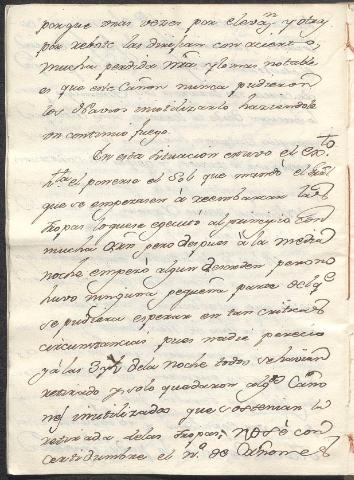 porque unas vezes por elevaz.n y otras
por rebote las dirijian con acierto, y
mucha perdida nra. y lo mas notable
es que este Cañon nunca pudieron
los nuestros inutilizarlo haziendole
un continuo fuego.
En esta situacion estuvo el Ex.to
h.ta el ponerse el Sol que mandó el Gral
que se empezasen á reembarcar las
tropas lo que se egecutó al principio con
mucha orn. pero despues á la media
noche empezó algun desorden pero no
huvo ninguna pequeña parte de lo q.e
se pudiera esperar en tan criticas
circunstancias pues nadie parecio
ya las 3 de la noche todos se havian
retirado y solo quedaron alg.s Caño
nes inutilizados que sostenian la
retirada de las tropas; No sé con
certidumbre el n.o de Cañones